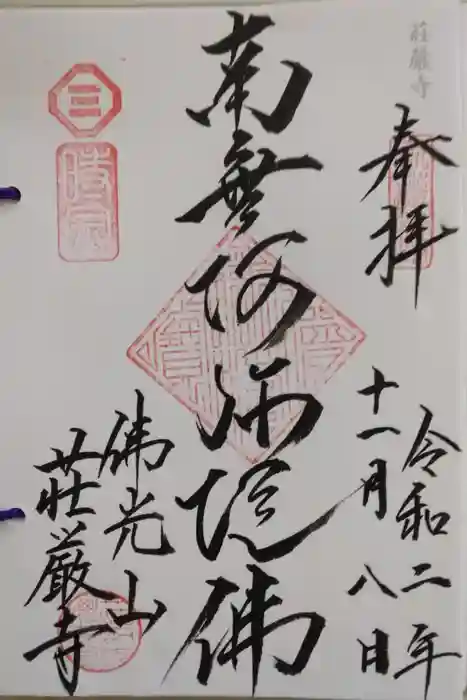 荘厳寺
奉拝
令和二年
十一月八日
南無阿弥陀佛
佛光山
荘厳寺
三
時宗